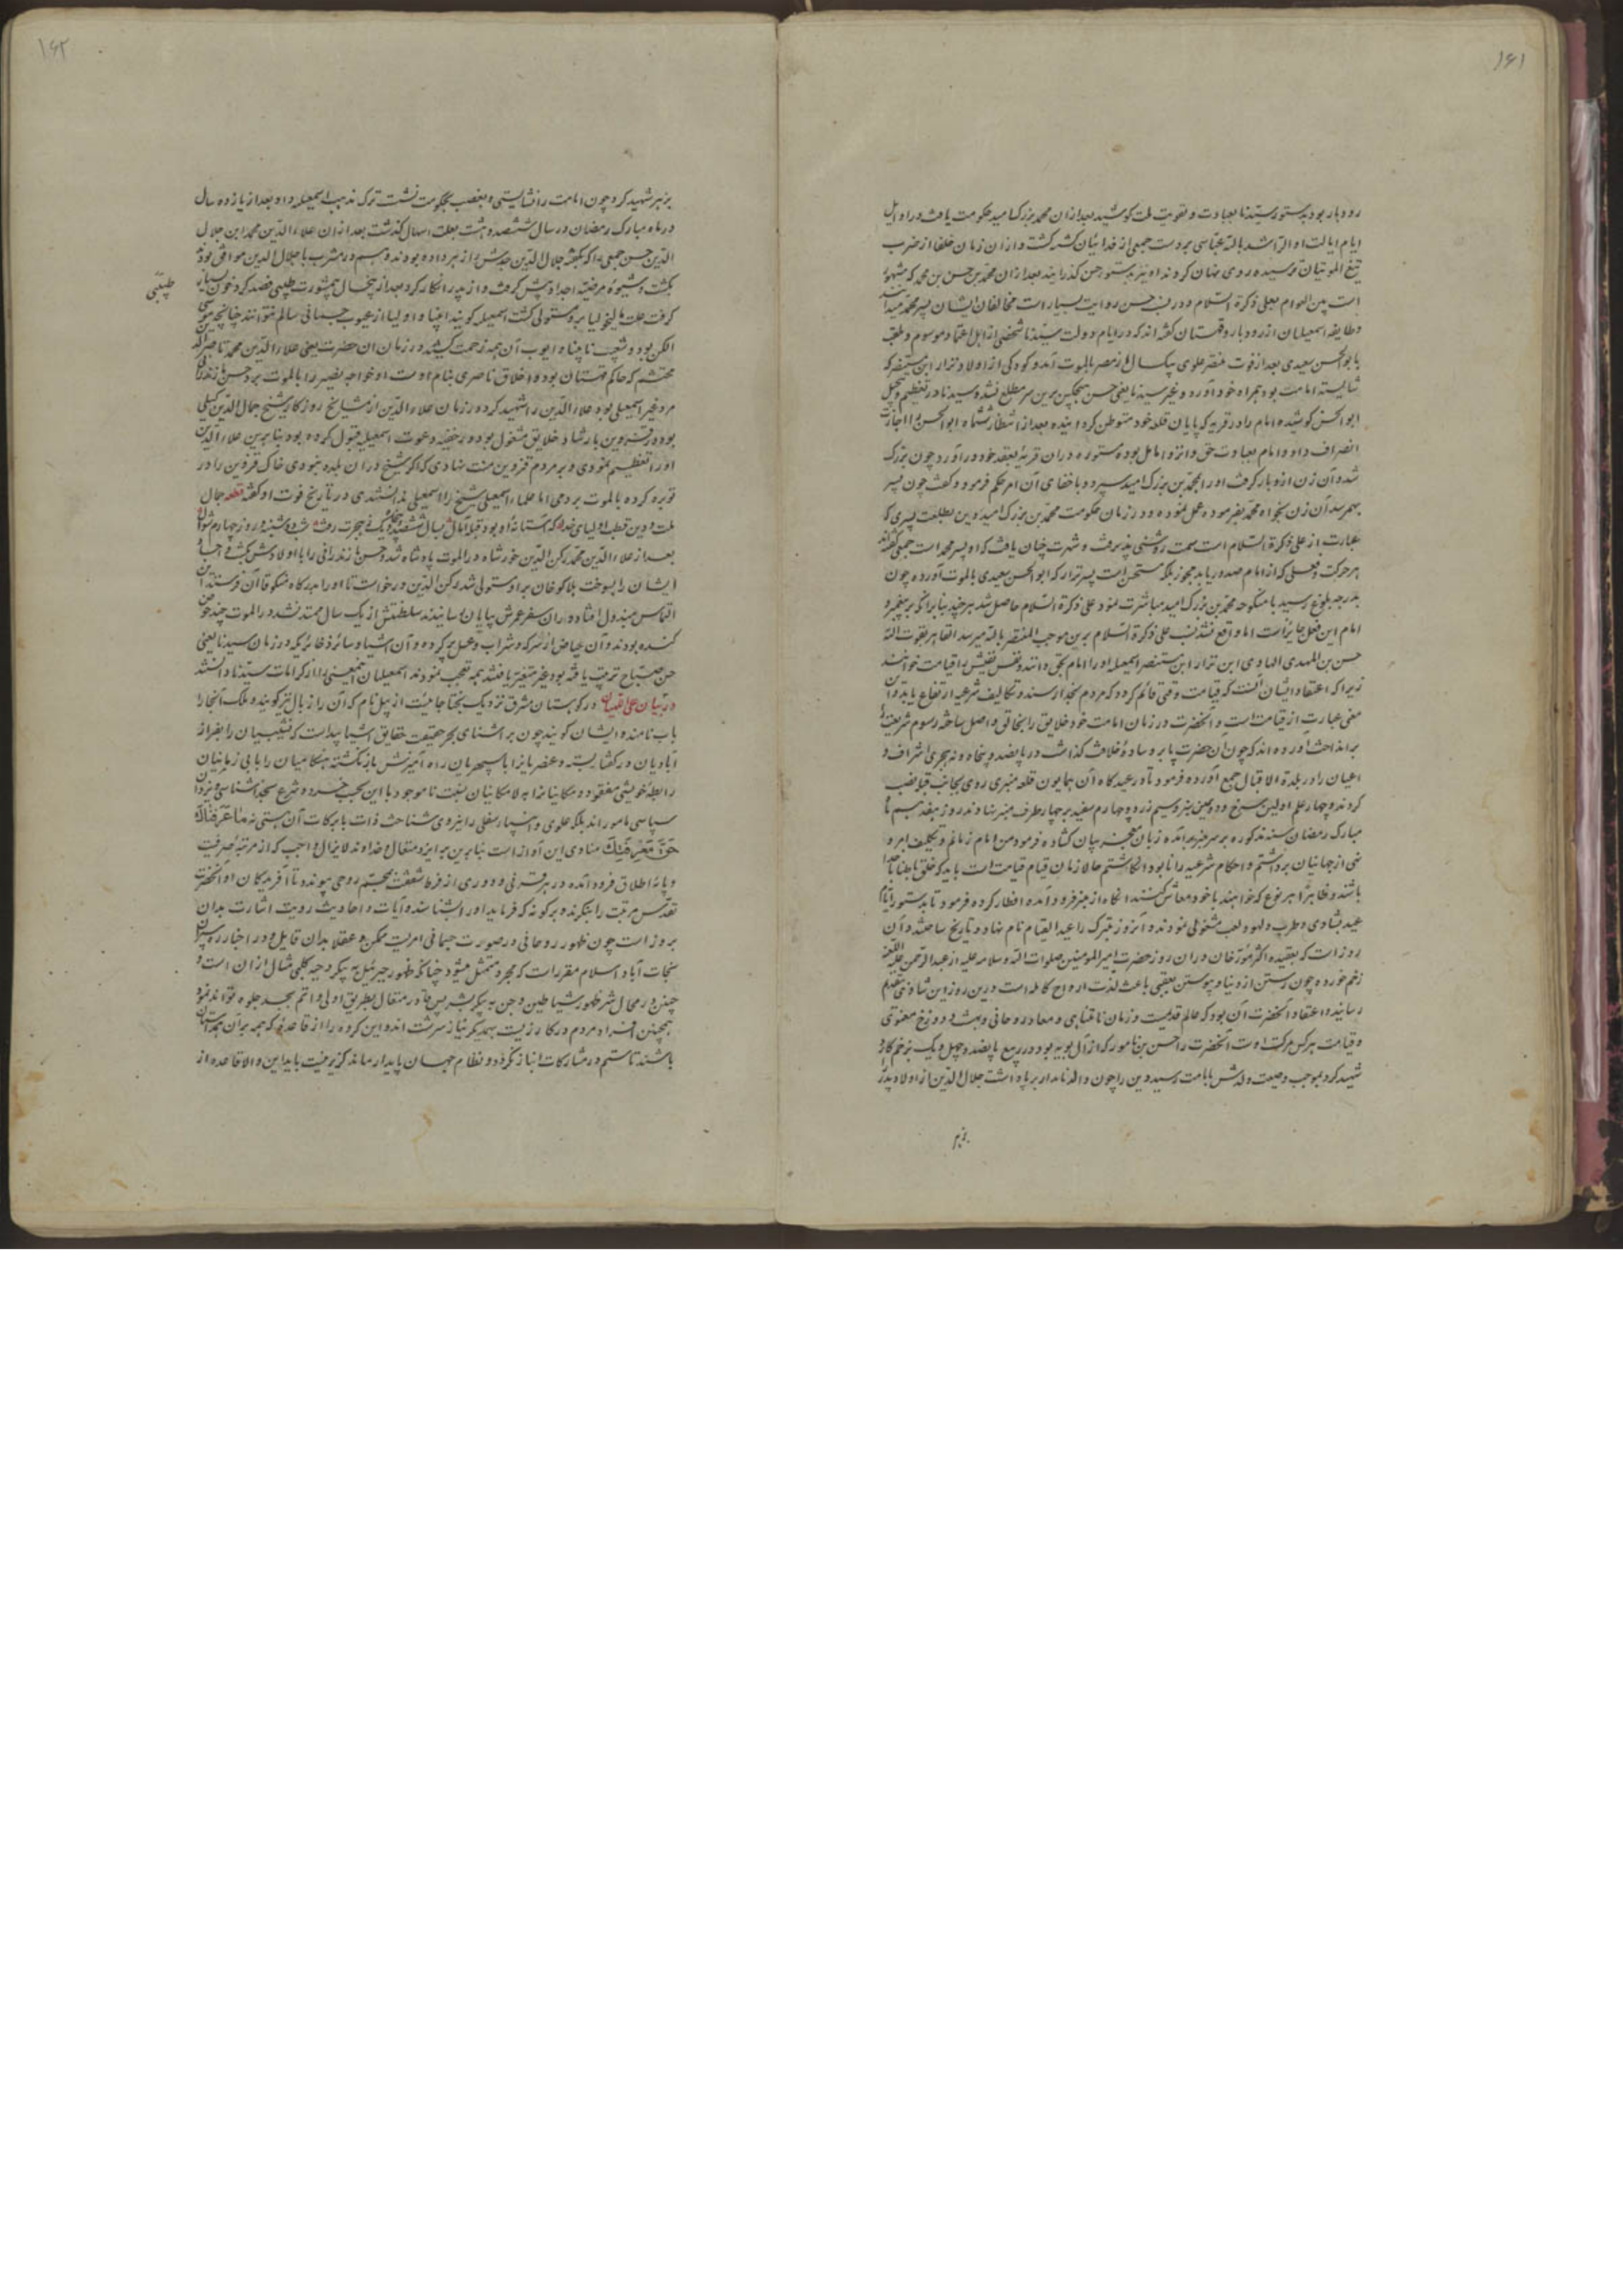 ۱۶۱
رودبار بود بدستور سیدنا بعبادت و تقویت ملت کوشید بعد ازان محمد بزرک امید حکومت یافت در اوایل
ایام ایالت او الراشد بالله عباسی بر دست جمعی از فدائیان کشته کشت و ازان زمان خلفا از ضرب
تیغ الموتیان ترسیده روی نهان کردند او نیز بدستور حسن کذرانید بعد ازان محمد بن حسن بن محمد که مشهور
است بین العوام بعلی ذکره السلام و در نسب حسن روایت بسیار است مخالفان ایشان پسر محمد میدانند
و طایفه اسمعیلیان از رودبار و قهستان کفته اند که در ایام دولت سیدنا شخصی از اهل اعتماد موسوم و ملقب
بابو الحسن سعیدی بعد از فوت منتصر علوی بیکسال از مصر بالموت آمد و کودکی از اولاد نزار ابن مستنصر که
شایسته امامت بود همراه خود آورد و غیر سیدنا یعنی حسن هیچکس برین سر مطلع نشد و سیدنا در تعظیم و تبجیل
ابو الحسن کوشیده امام را در قریه که پایان قلعه خود متوطن کردانیده بعد از انتظار ششماه ابو الحسن را اجازت
انصراف داد و امام بعبادت حق و انزوا مایل بوده مستوره دران قریه بعقد خود در آورد چون بزرک
شد و آن زن ازو بار کرفت او را بمحمد بن بزرک امید سپرد و باخفای آن امر حکم فرمود و کفت چون پسر
بهمرسد آن زن بخواه محمد بفرموده عمل نموده و در زمان حکومت محمد بن بزرک امید این بطلعت پسری که
عبارت از علی ذکره السلام است سمت روشنی پذیرفت و شهرت چنان یافت که او پسر محمد است جمعی کفته اند
هر حرکت و فعلی که از امام صدور یابد مجوز بلکه مستحسن است پسر نزار که ابو الحسن سعیدی بالموت آورده چون
بدرجه بلوغ رسید با منکوحه محمد بن بزرک امید مباشرت نمود علی ذکره السلام حاصل شد هرچند بنا برانکه بر پیغمبر و
امام این فعل جایز است اما واقع نشد نسب علی ذکره السلام برین موجب المنتصر بالله میرسد القاهر بقوت الله
حسن بن المهدی الهادی ابن نزار ابن مستنصر اسمعیلیه او را امام بحق دانند و نفس نفیسش را قیامت خوانند
زیرا که اعتقاد ایشان آنست که قیامت وقتی قائم کردد که مردم بخدا رسند و تکالیف شرعیه ارتفاع یابد و آن
معنی عبارت از قیامت است و آنحضرت در زمان امامت خود خلایق را بخالق واصل ساخته رسوم شریعت را
برانداخت آورده اند که چون آن حضرت پا بر وساده خلافت کذاشت در پانصد و پنجاه و نه هجری اشراف و
اعیان را در بلدة الاقبال جمع آورده فرمود تا در عیدکاه آن همایون قلعه منبری روی بجانب قبله نصب
کردند و چهار علم اولین سرخ و دومین سبز و سیم زرد و چهارم سفید بر چهار طرف منبر نهادند در روز هفدهم ماه
مبارک رمضان سنه مذکوره بر سر منبر برآمده زبان معجز بیان کشاده فرمود من امام زمانم و تکلیف امر و
نهی از جهانیان برداشتم و احکام شرعیه را نابود انکاشتم حالا زمان قیام قیامت است باید که خلق بباطن با خدا
باشند و ظاهرا هر نوع که خواهند با خود معاش کنند انکاه از منبر فرود آمده افطار کرده فرمود تا بدستور ایام
عید بشادی و طرب و لهو و لعب مشغولی نمودند و آنروز متبرک را عید القیام نام نهاد و تاریخ ساختند و آن
روز است که بعقیده اکثر مورخان دران روز حضرت امیر المومنین صلوات الله و سلامه علیه از عبد الرحمن علیه اللعنة
زخم خورده چون رستن از دنیا و پیوستن بعقبی باعث لذت ارواح کامله است درین روز این شادی بتقدیم
رسانیده اعتقاد آنحضرت آن بود که عالم قدیمست و زمان نامتناهی و معاد روحانی و بهشت و دوزخ معنوی
و قیامت هر کس مرکت اوست آنحضرت را حسن بن نامور که از آل بویه بود در ربیع پانصد و چهل و یک بزخم کارد
شهید کرد بموجب وصیت ولدش بامامت رسید دین را چون والد نامدار برپا داشت جلال الدین از اولاد پدر را
بزهر
۱۶۲
بزهر شهید کرد چون امامت را نشایستی و بغصب بحکومت نشست ترک مذهب اسمعیلیه داد بعد از یازده سال
در ماه مبارک رمضان در سال ششصد و هشت بعلت اسهال کذشت بعد ازان علاء الدین محمد ابن جلال
الدین حسن جمعی را که بکفته جلال الدین جدش را زهر داده بودند و هم در مشرب با جلال الدین موافق بودند
بکشت و شیوه مرضیه اجداد پیش کرفت و از پدر انکار کرد بعد از پنجسال بیمشورت طبیبی فصد کرد خون بسیار
طبیبی
کرفت علت مالیخولیا برو مستولی کشت اسمعیلیه کویند انبیا و اولیا از عیوب جسمانی سالم نتوانند چنانچه موسی
الکن بود و شعیب نابینا و ایوب آن همه زحمت کشید در زمان ان حضرت یعنی علاء الدین محمد ناصر الدین
محتشم که حاکم قهستان بود و اخلاق ناصری بنام اوست او خواجه نصیر را بالموت برد حسن مازندرانی
مرد غیر اسمعیلی بود علاء الدین را شهید کرد در زمان علاء الدین از مشایخ روزکار شیخ جمال الدین کیلی
بود در قزوین بارشاد خلایق مشغول بود در خفیه دعوت اسمعیلیه قبول کرده بود بنا برین علاء الدین
او را تعظیم نمودی و بر مردم قزوین منت نهادی که اکر شیخ دران بلده نبودی خاک قزوین را در
توبره کرده بالموت بردمی اما علماء اسمعیلی شیخ را اسمعیلی ندانستندی در تاریخ فوت او کفته قطعه جمال
ملت و دین قطب اولیای خدا که آستانه او بود قبله آمال بسال ششصد و پنجاه و یک ز هجرت رفت شب دوشنبه و روز چهارم شوال
بعد از علاء الدین محمد رکن الدین خورشاه در الموت پادشاه شد و حسن مازندرانی را با اولادش بکشت و اجساد
ایشان را بسوخت هلاکو خان برو مستولی شد رکن الدین درخواست تا او را بدرکاه منکو قاآن فرستد این
التماس مبذول افتاد دران سفر عمرش بپایان رسانیدند سلطنتش از یک سال ممتد نشد در الموت چند حوض
کنده بودند و آن حیاض از سرکه و شراب و عسل پر کرده و آن اشیا و سائر ذخائر که در زمان سیدنا یعنی
حسن صباح ترتیب یافته بود غیر متغیر یافتند همه تعجب نمودند اسمعیلیان اینمعنی را از کرامات سیدنا دانستند
در بیان علی اللهیان در کوهستان مشرق نزدیک بختا جائیست ازیل نام که آن را زبال نیز کویند و ملک آنجا را
باب نامند ایشان کویند چون بر اشنای بحر حقیقت حقایق اشیا پیداست که نشیبیان را بفراز
آبادیان در کشا بسته و عنصریانرا با سپهریان راه آمیزش باز نکشته هنکامیان را با بی زمانیان
رابطه خویشی مفقود و مکانیانرا به لامکانیان نسبت نا موجود با این بحسب خرد و شرع بخدا شناسی و یزدان
سپاسی مامور اند بلکه علوی و سفلی را نیروی شناخت ذات با برکات آن هستی نه ما عَرَفْناكَ
حَقَّ مَعْرِفَتِكَ منادی این آواز است بنا برین بر ایزد متعال و خداوند لایزال واجب که از مرتبه صرفیت
و پایه اطلاق فرود آمده در هر قرنی و دوری از فرط شفقت بجسم روحی پیوندد تا آفریدکان او آنحضرت
تقدس مرتبت را بنکرند و هر کونه که فرماید او را شناسند و آیات و احادیث رویت اشارت بدان
بروز است چون ظهور روحانی در صورت جسمانی امریست ممکن و عقلا بدان قایل و در اخبار پیمبران
نجات آباد اسلام مقرر است که مجرد متمثل میشود چنانکه ظهور جبرئیل به پیکر دحیه کلبی مثال ازان است و
چنین در محال شر ظهور شیاطین و جن به پیکر بشر پس قادر متعال بطریق اولی و اتم بجسد جلوه تواند نمود
همچنین افراد مردم در کار زیست بهمدیکر نیاز سرشت اند و این کروه را از قاعده که همه بران همداستان
باشند تا ستم در مشارکات انباز نکردد و نظام جهان پایدار ماند کزیر نیست باید این والا قاعده از